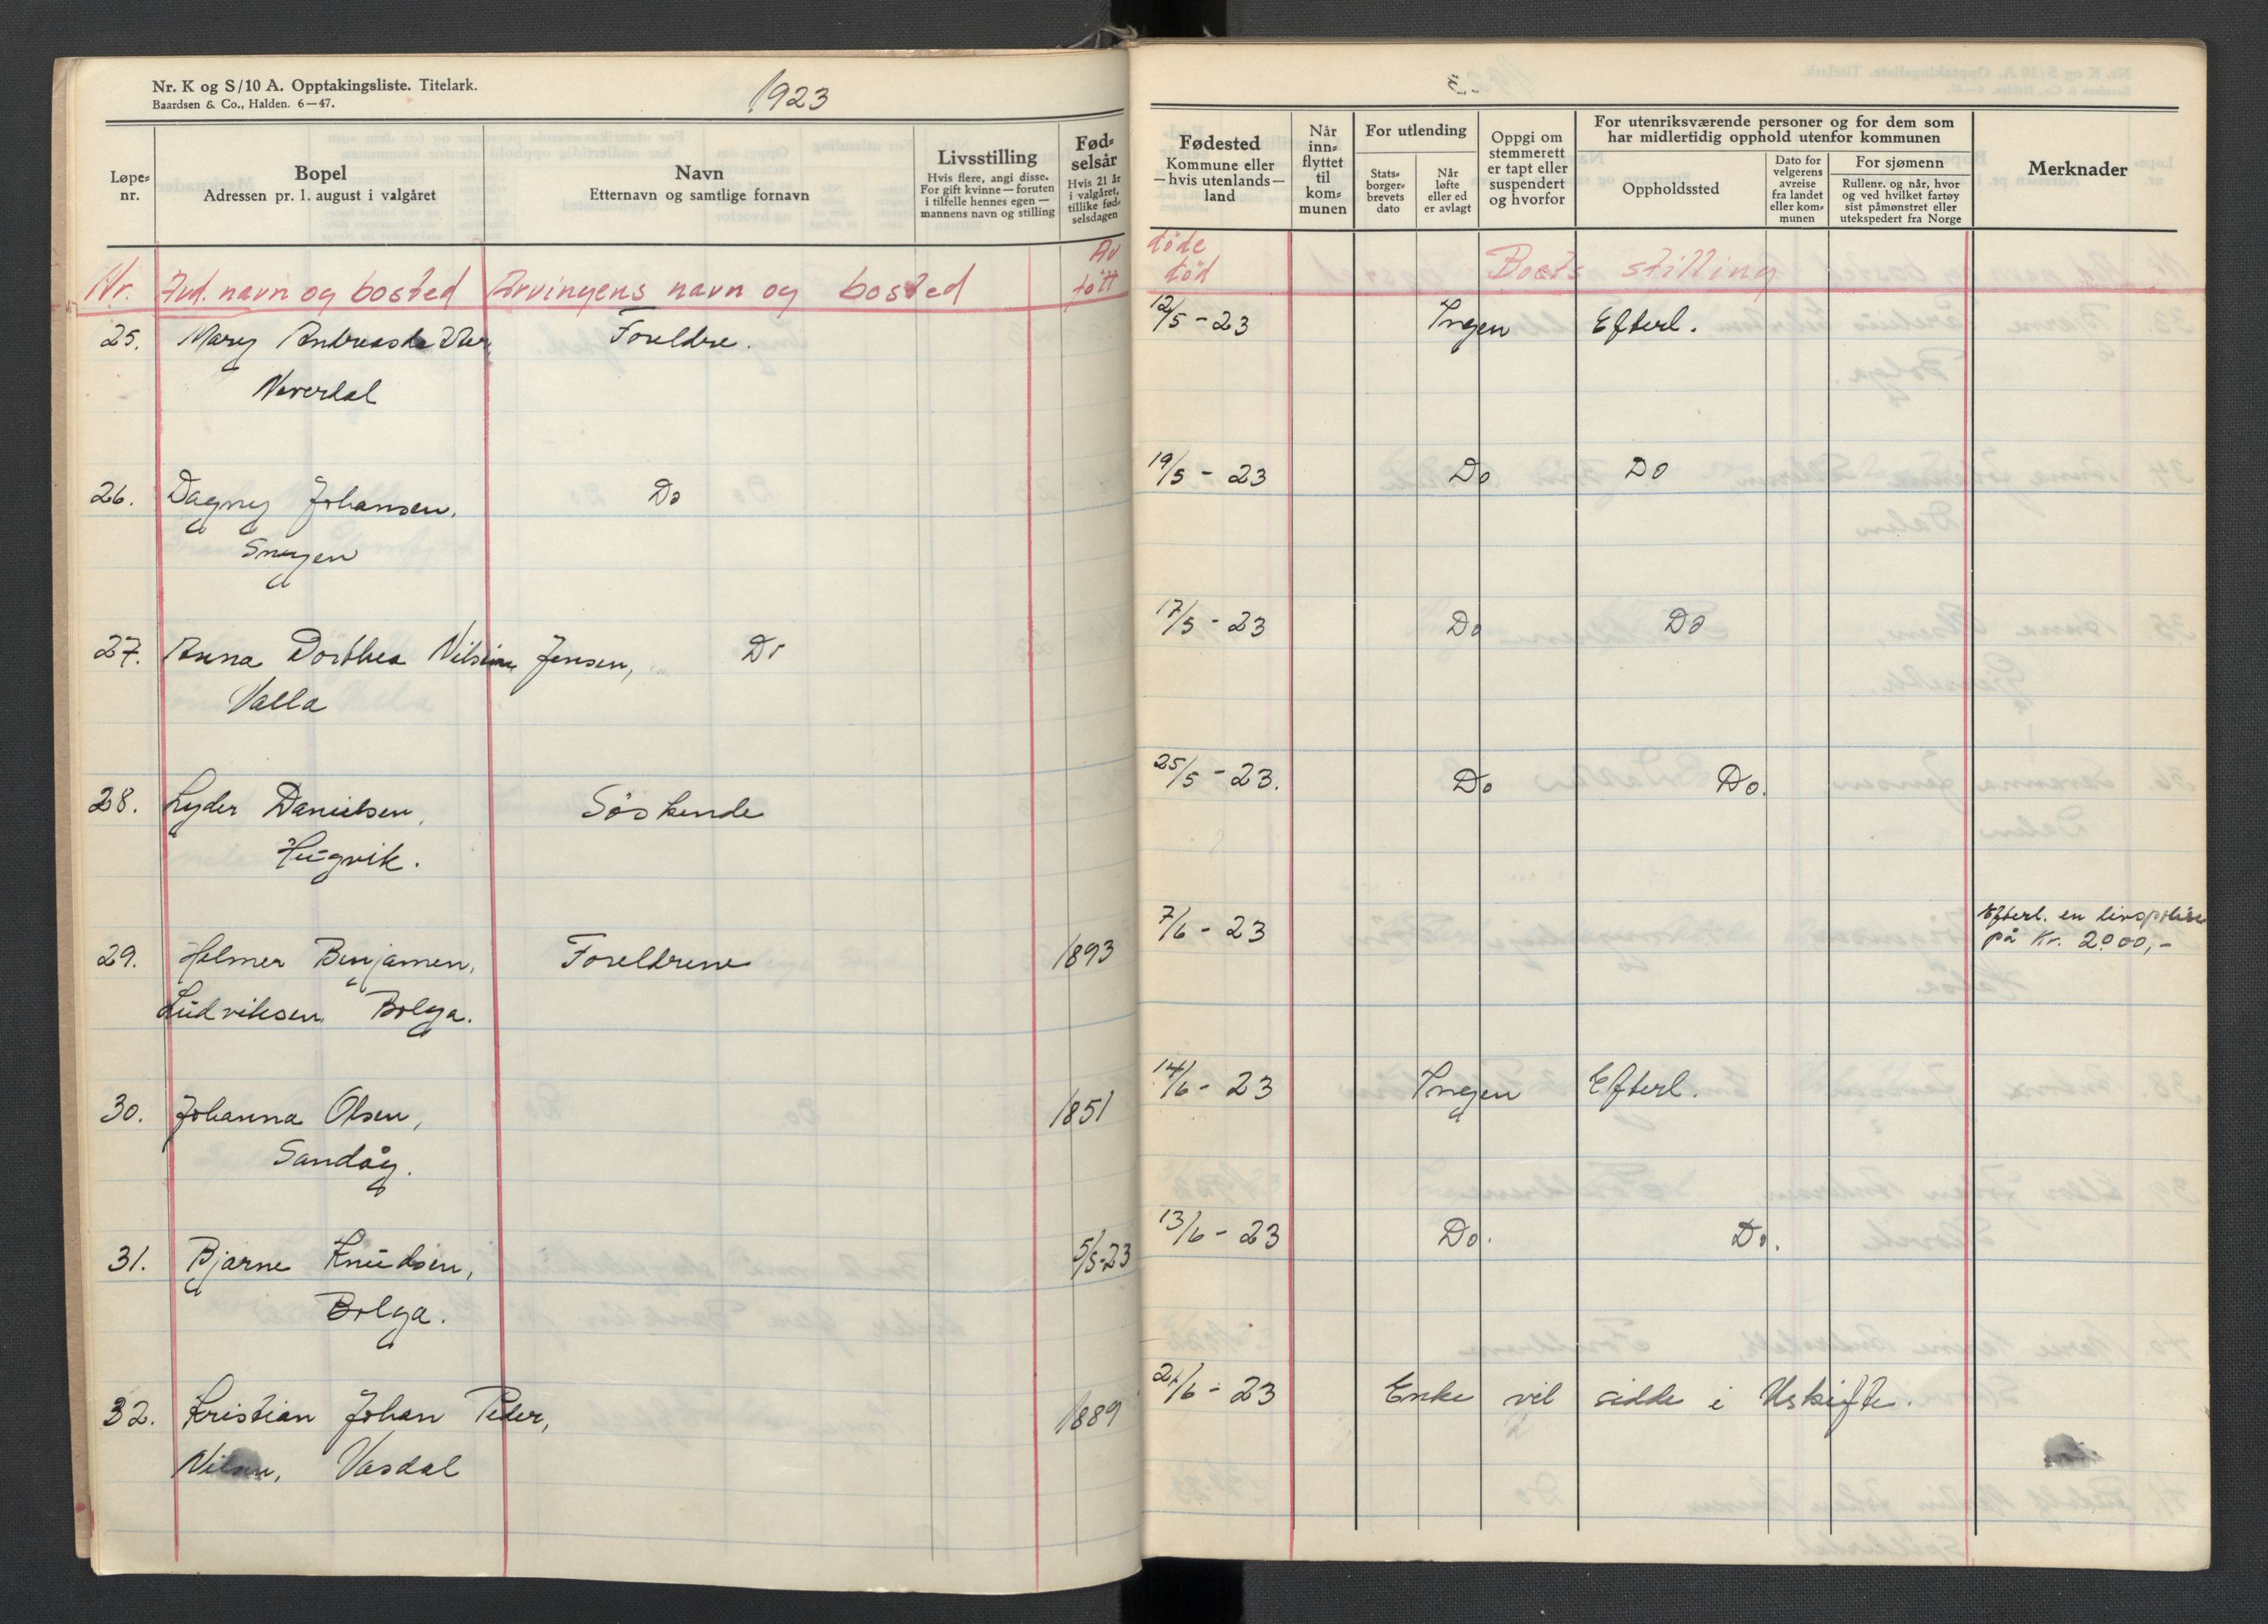 Nr. K og S/10 A. Opptakingsliste. Titelark.
Baardsen & Co., Halden. 6—47.
1923
Løpe-nr.
Bopel
Adressen pr. 1. august i valgåret
Navn
Etternavn og samtlige fornavn
Livsstilling
Hvis flere, angi disse.
For gift kvinne — foruten
i tilfelle hennes egen —
mannens navn og stilling
Fød-
selsår
Hvis 21 år
i valgåret,
tillike fød-
selsdagen
Fødested
Kommune eller
—hvis utenlands—
land
Når
inn-
flyttet
til
kom-
munen
For utlending
Stats-
borger-
brevets
dato
Når
løfte
eller ed
er avlagt
Oppgi om
stemmerett
er tapt eller
suspendert
og hvorfor
For utenriksværende personer og for dem som
har midlertidig opphold utenfor kommunen
Oppholdssted
Dato for
velgerens
avreise
fra landet
eller kom-
munen
For sjømenn
Rullenr. og når, hvor
og ved hvilket fartøy
sist påmønstret eller
utekspedert fra Norge
Merknader
Av døde
Nr. Avd. navn og bosted Arvingens navn og bosted født død Boets stilling
25. Mary Foreldre. 12/5 - 23 Ingen Efterl.
Neverdal
26. Dagny Johansen, Do 19/5 - 23 Do Do
27. Anna Dorthea Nilsine Jensen, Do 17/5 - 23 Do Do
Valla
28. Lyder Danielsen, Söskende 25/5 - 23. Do Do.
Hugvik.
29. Helmer Benjamen, Foreldrene 1893 7/6 - 23 Efterl. en livspolise
på Kr. 2000,-
Ludviksen, Bolga.
30. Johanna Olsen, 1851 14/6 - 23 Ingen Efterl.
Sandåg.
31. Bjarne Knudsen, 5/5-23 13/6 - 23 Do. Do.
Bolga.
32. Kristian Johan Peder, 1889 21/6 - 23 Enke vil sidde i Uskifte.
Nilsen, Vasdal